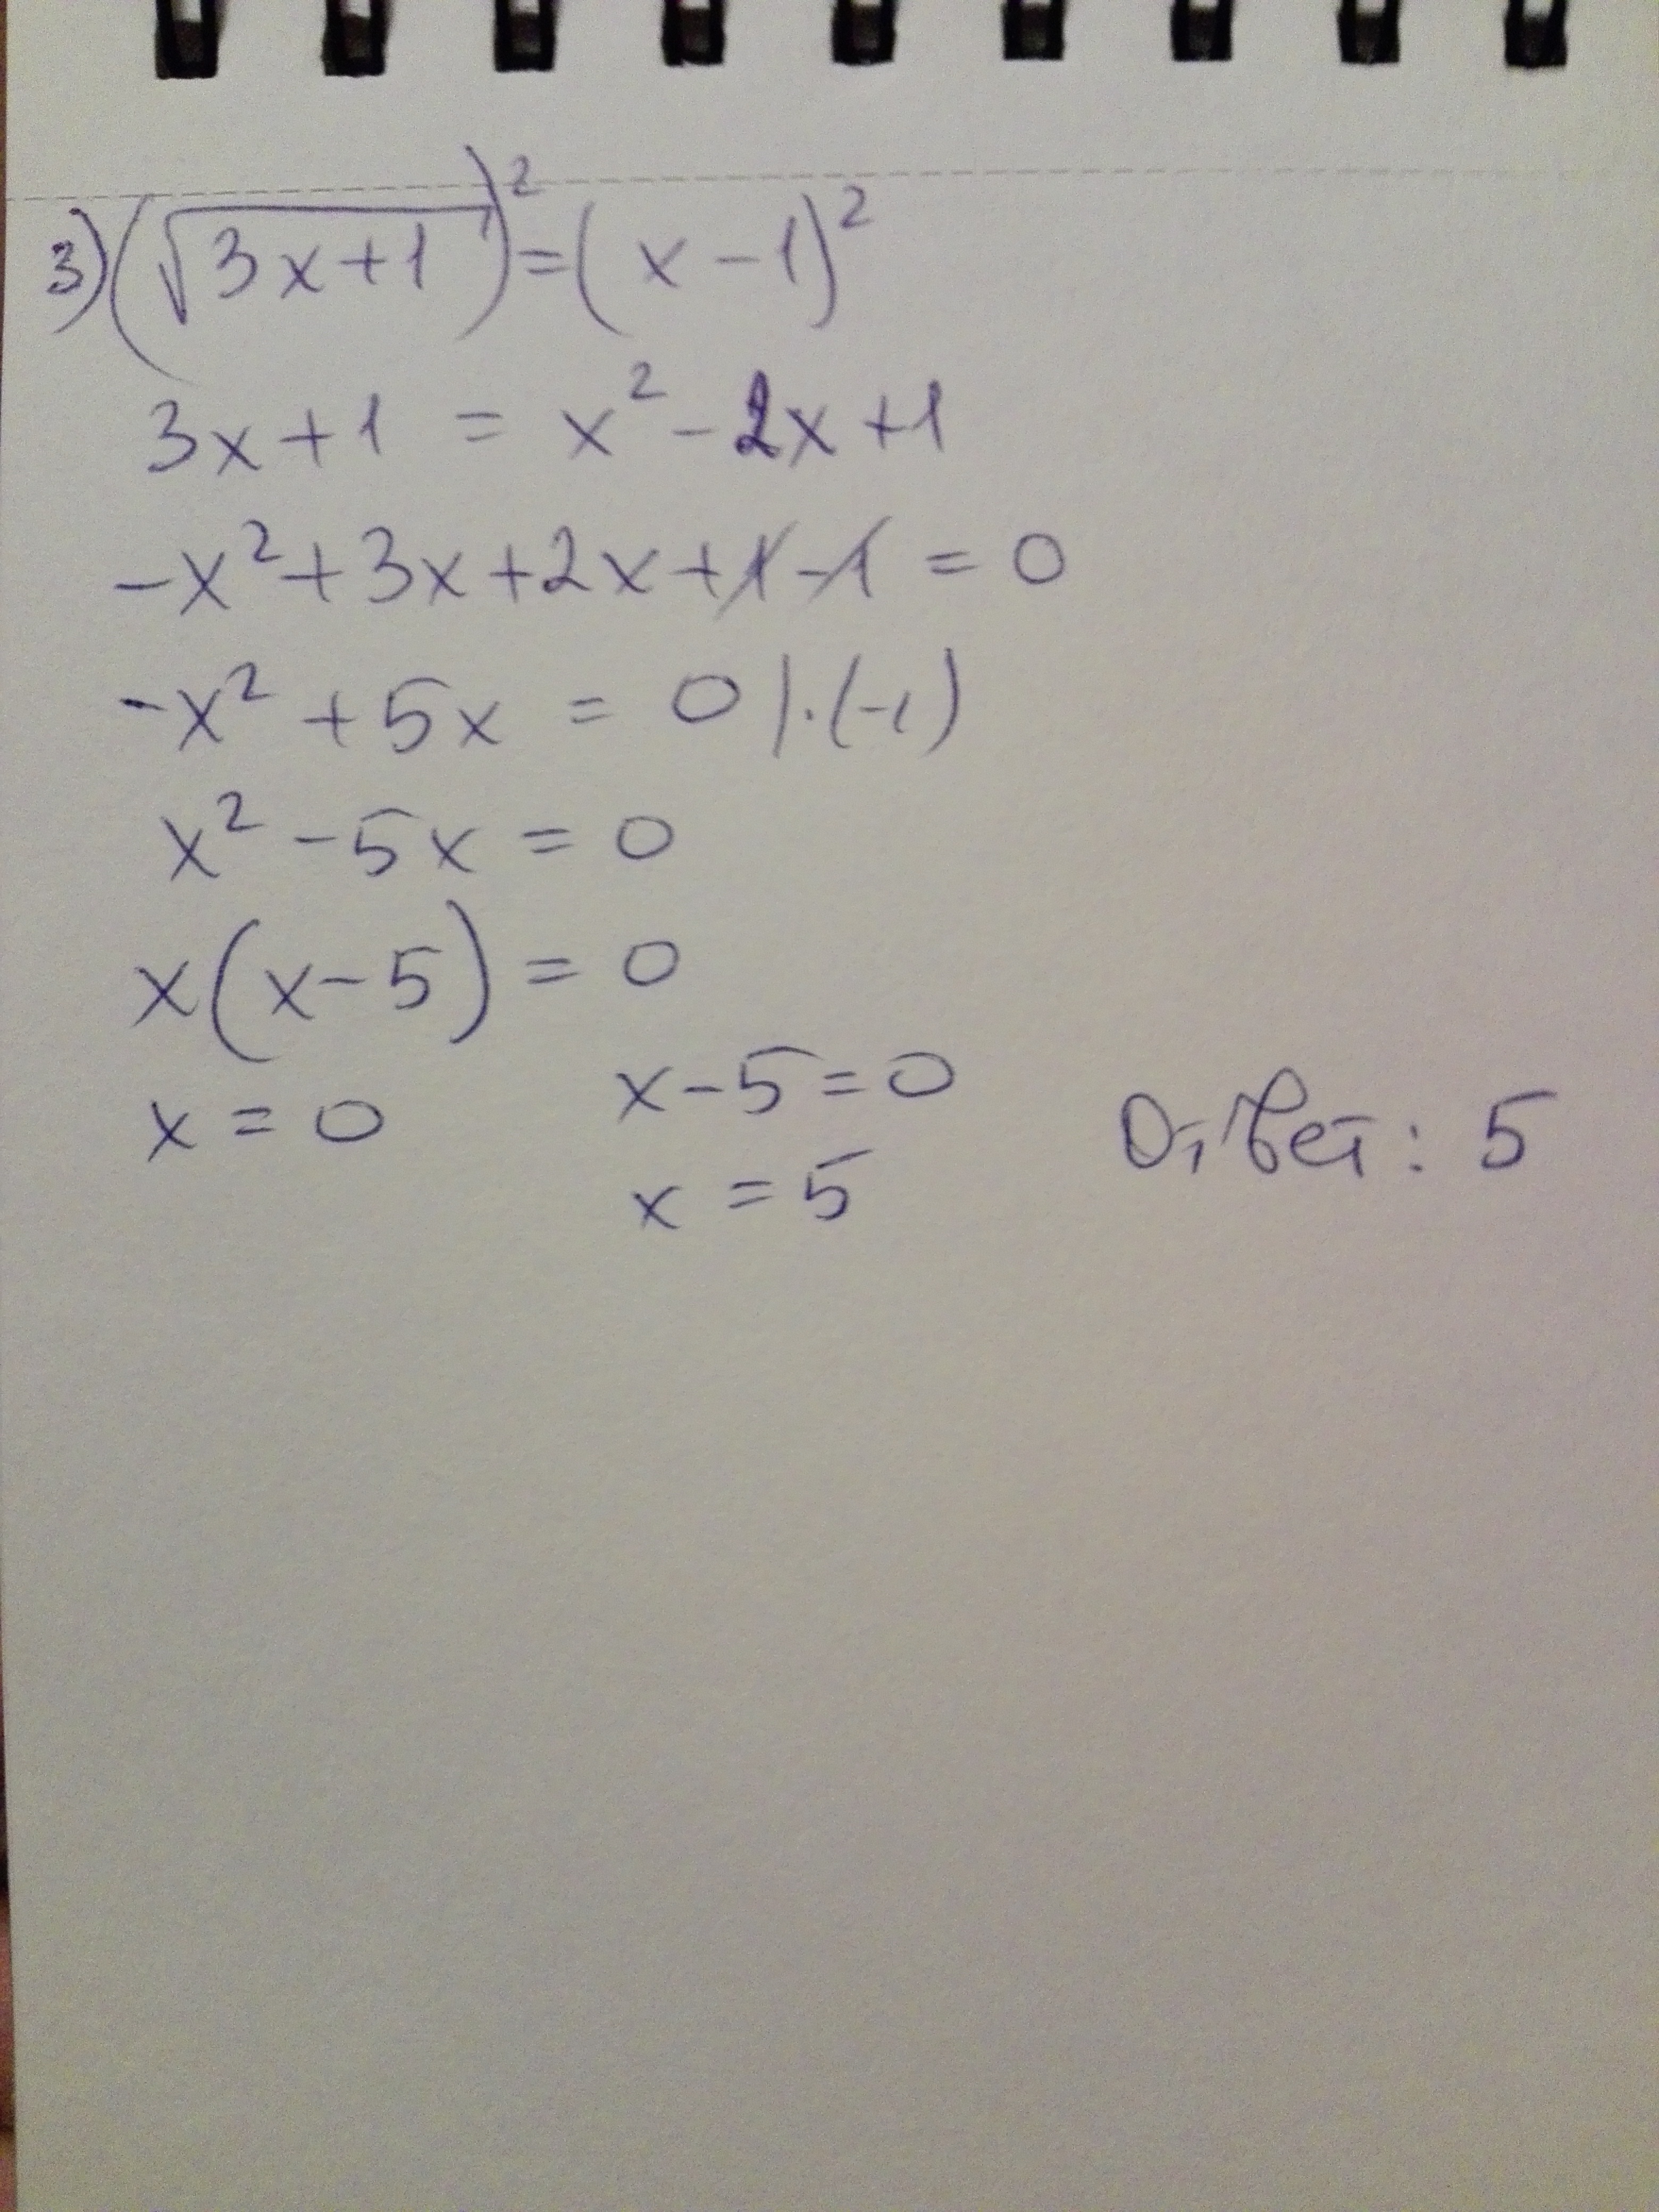 3) (√3x+1)² = (x-1)²
3x+1 = x² - 2x+1
-x²+3x+2x+1-1 = 0
-x² + 5x = 0 | · (-1)
x² - 5x = 0
x(x-5) = 0
x = 0 x-5=0 Ответ: 5
x = 5